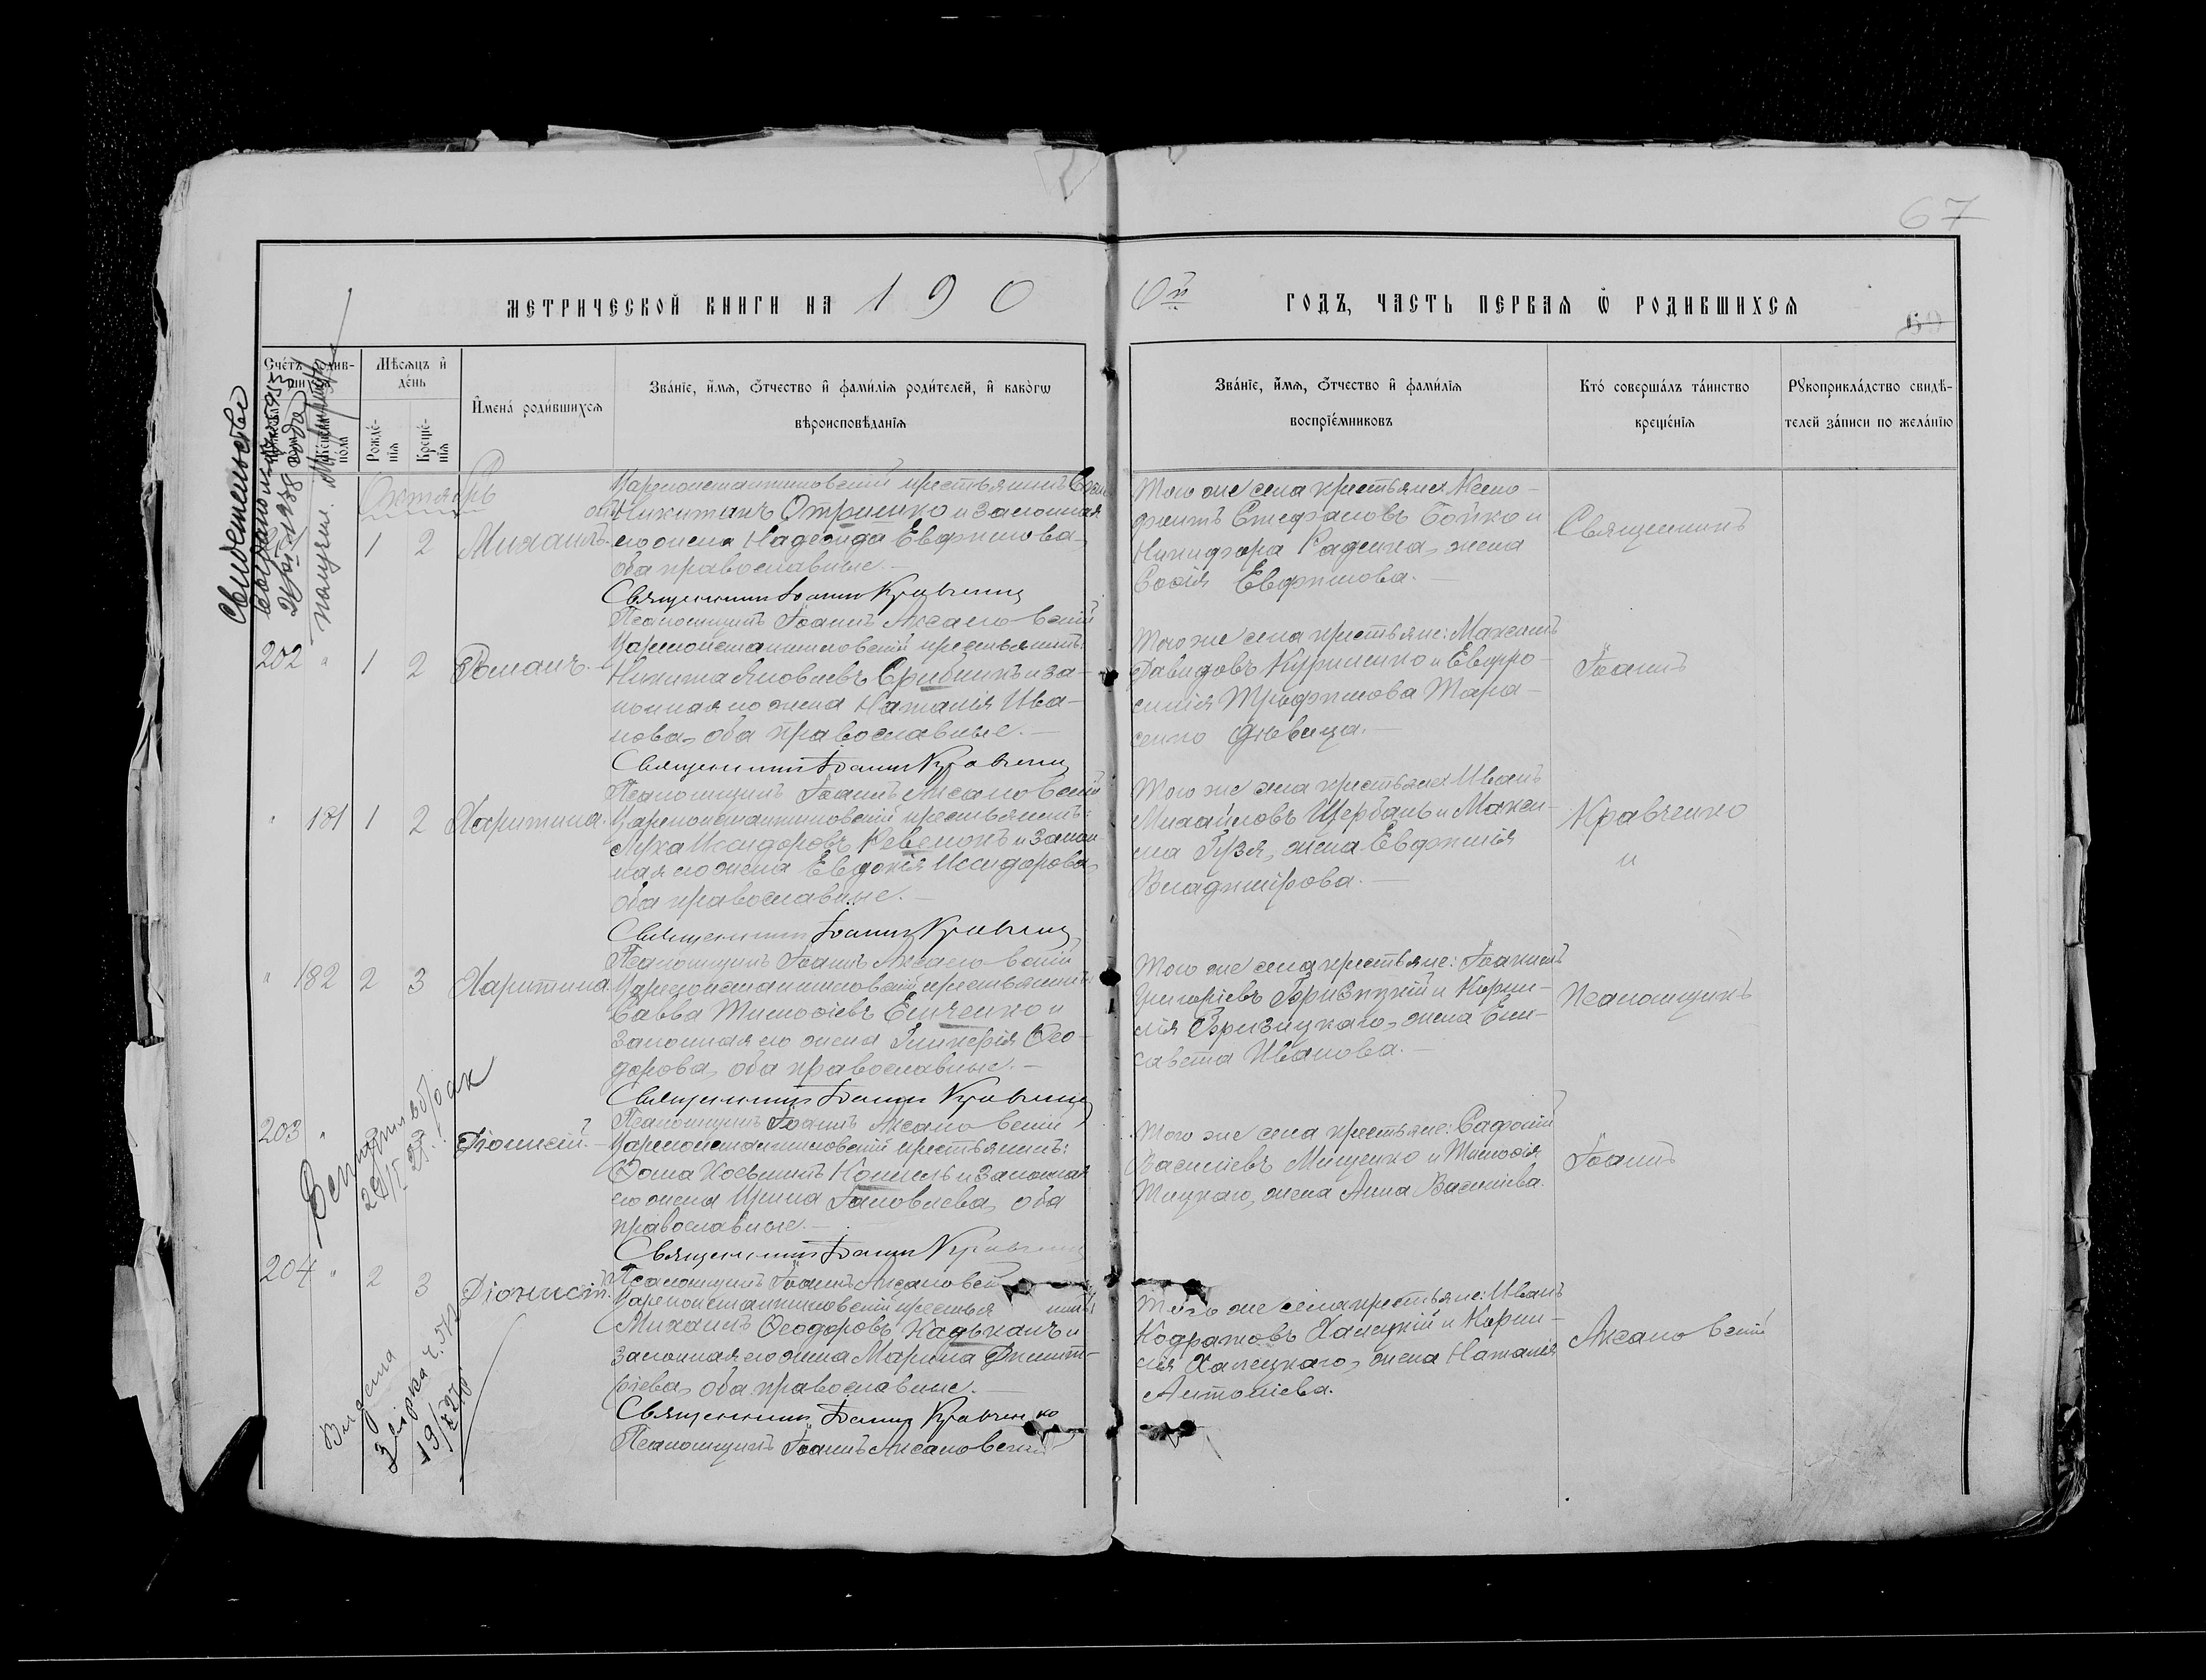 67
МЕТРИЧЕСКОЙ КНИГИ НА 190
0й ГОДЪ, ЧАСТЬ ПЕРВАЯ Ѿ РОДИВШИХСЯ
Счетъ родив-
шихся
Мѣсяцъ и
день
Рожде-
нія
Креще-
нія
Имена родившихся
Званіе, имя, отчество и фамилія родителей, и какогѡ
вѣроисповѣданія
Званіе, имя, отчество и фамилія
воспріемниковъ
Кто совершалъ таинство
крещенія
Рукоприкладство свидѣ-
телей записи по желанію
Свидетельство
Октябрь
1 2 Михаилъ.
Никитанъ Отришко и законная
его жена Надежда Евфимова,
оба православные.
Священникъ Іоаннъ Кравченко
Псаломщикъ Іоаннъ Аксаковскій
Того же села крестьяне: Ксено-
фонтъ Стефановъ Бойко и
Никифора Раденка, жена
Софія Евфимова.
Священникъ
202 " 1 2 Романъ.
Цареконстантиновскій крестьянинъ:
Никита Яковлевъ Срибникъ и за-
конная его жена Наталія Ива-
нова, оба православные.
Священникъ Іоаннъ Кравченко
Псаломщикъ Іоаннъ Аксаковскій
Того же села крестьяне: Максимъ
Давидовъ Куриленко и Евфро-
синія Трофимова Тара-
сенко дѣвица.
Іоаннъ
" 181 1 2 Харитина.
Цареконстантиновскій крестьянинъ:
Лука Исидоровъ Ревенокъ и закон-
ная его жена Евдокія Исидорова,
оба православные.
Священникъ Іоаннъ Кравченко
Псаломщикъ Іоаннъ Аксаковскій
Того же села крестьяне: Иванъ
Михайловъ Щербань и Макси-
ма Гузя, жена Евфимія
Владимірова.
Кравченко
и
" 182 2 3 Харитина
Цареконстантиновскій крестьянинъ:
Савва Тимофіевъ Ельченко и
законная его жена Гликерія Ѳео-
дорова, оба православные.
Священникъ Іоаннъ Кравченко
Псаломщикъ Іоаннъ Аксаковскій
Того же села крестьяне: Іоакимъ
Григоріевъ Бризицкій и Корни-
лія Бризицкаго, жена Ели-
савета Иванова.
Псаломщикъ
203 " Діонисій.
Цареконстантиновскій крестьянинъ:
Ѳома Косьминъ Кошель и законная
его жена Ирина Іаковлева, оба
православные.
Священникъ Іоаннъ Кравченко
Псаломщикъ Іоаннъ Аксаковскій
Того же села крестьяне: Софоній
Василіевъ Мищенко и Тимофія
жена Анна Василіева.
Іоаннъ
204 " 2 3 Діонисій.
Цареконстантиновскій крестьянинъ:
Михаилъ Ѳеодоровъ Кадькалъ и
законная его жена Марина Димит-
ріева, оба православные.
Священникъ Іоаннъ Кравченко
Псаломщикъ Іоаннъ Аксаковскій
Того же села крестьяне: Иванъ
Кодратовъ Халецкій и Корни-
лія Халецкаго, жена Наталія
Антоніева.
Аксаковскій